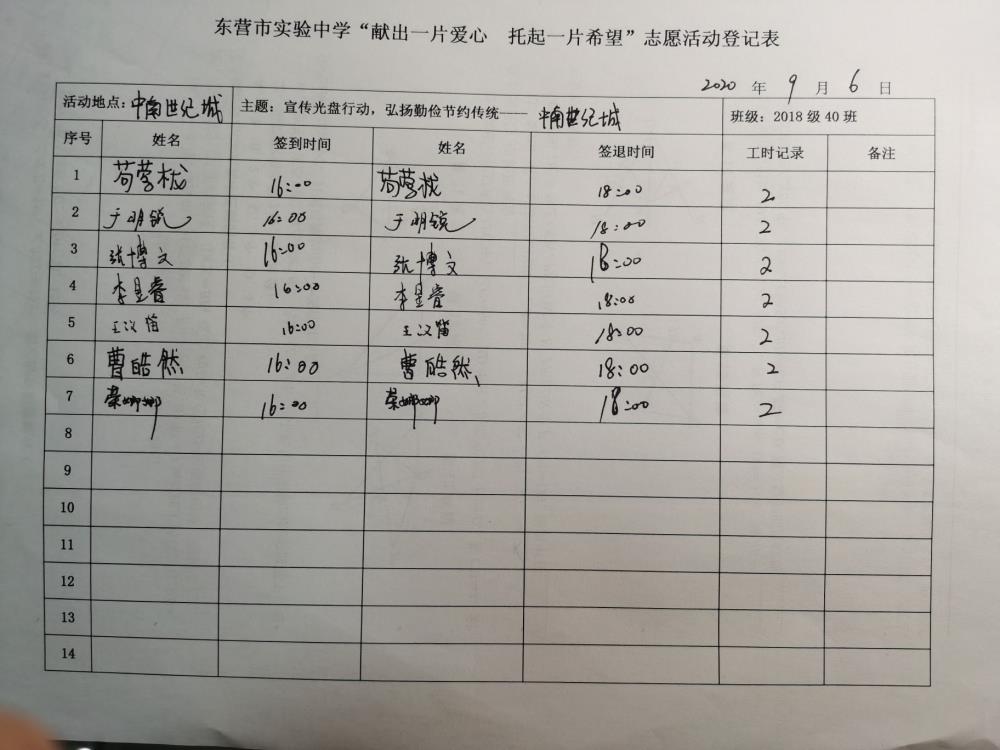 东营市实验中学“献出一片爱心 托起一片希望”志愿活动登记表
2020 年 9 月 6 日
活动地点：中南世纪城 主题：宣传光盘行动，弘扬勤俭节约传统—— 中南世纪城 班级：2018 级 40 班
序号 姓名 签到时间 姓名 签退时间 工时记录 备注
1 苟营 16:00 苟营 18:00 2
2 于明锐 16:00 于明锐 18:00 2
3 张博文 16:00 张博文 18:00 2
4 李星睿 16:00 李星睿 18:00 2
5 王汉笛 16:00 王汉笛 18:00 2
6 曹皓然 16:00 曹皓然 18:00 2
7 荣娜娜 16:00 荣娜娜 18:00 2
8
9
10
11
12
13
14